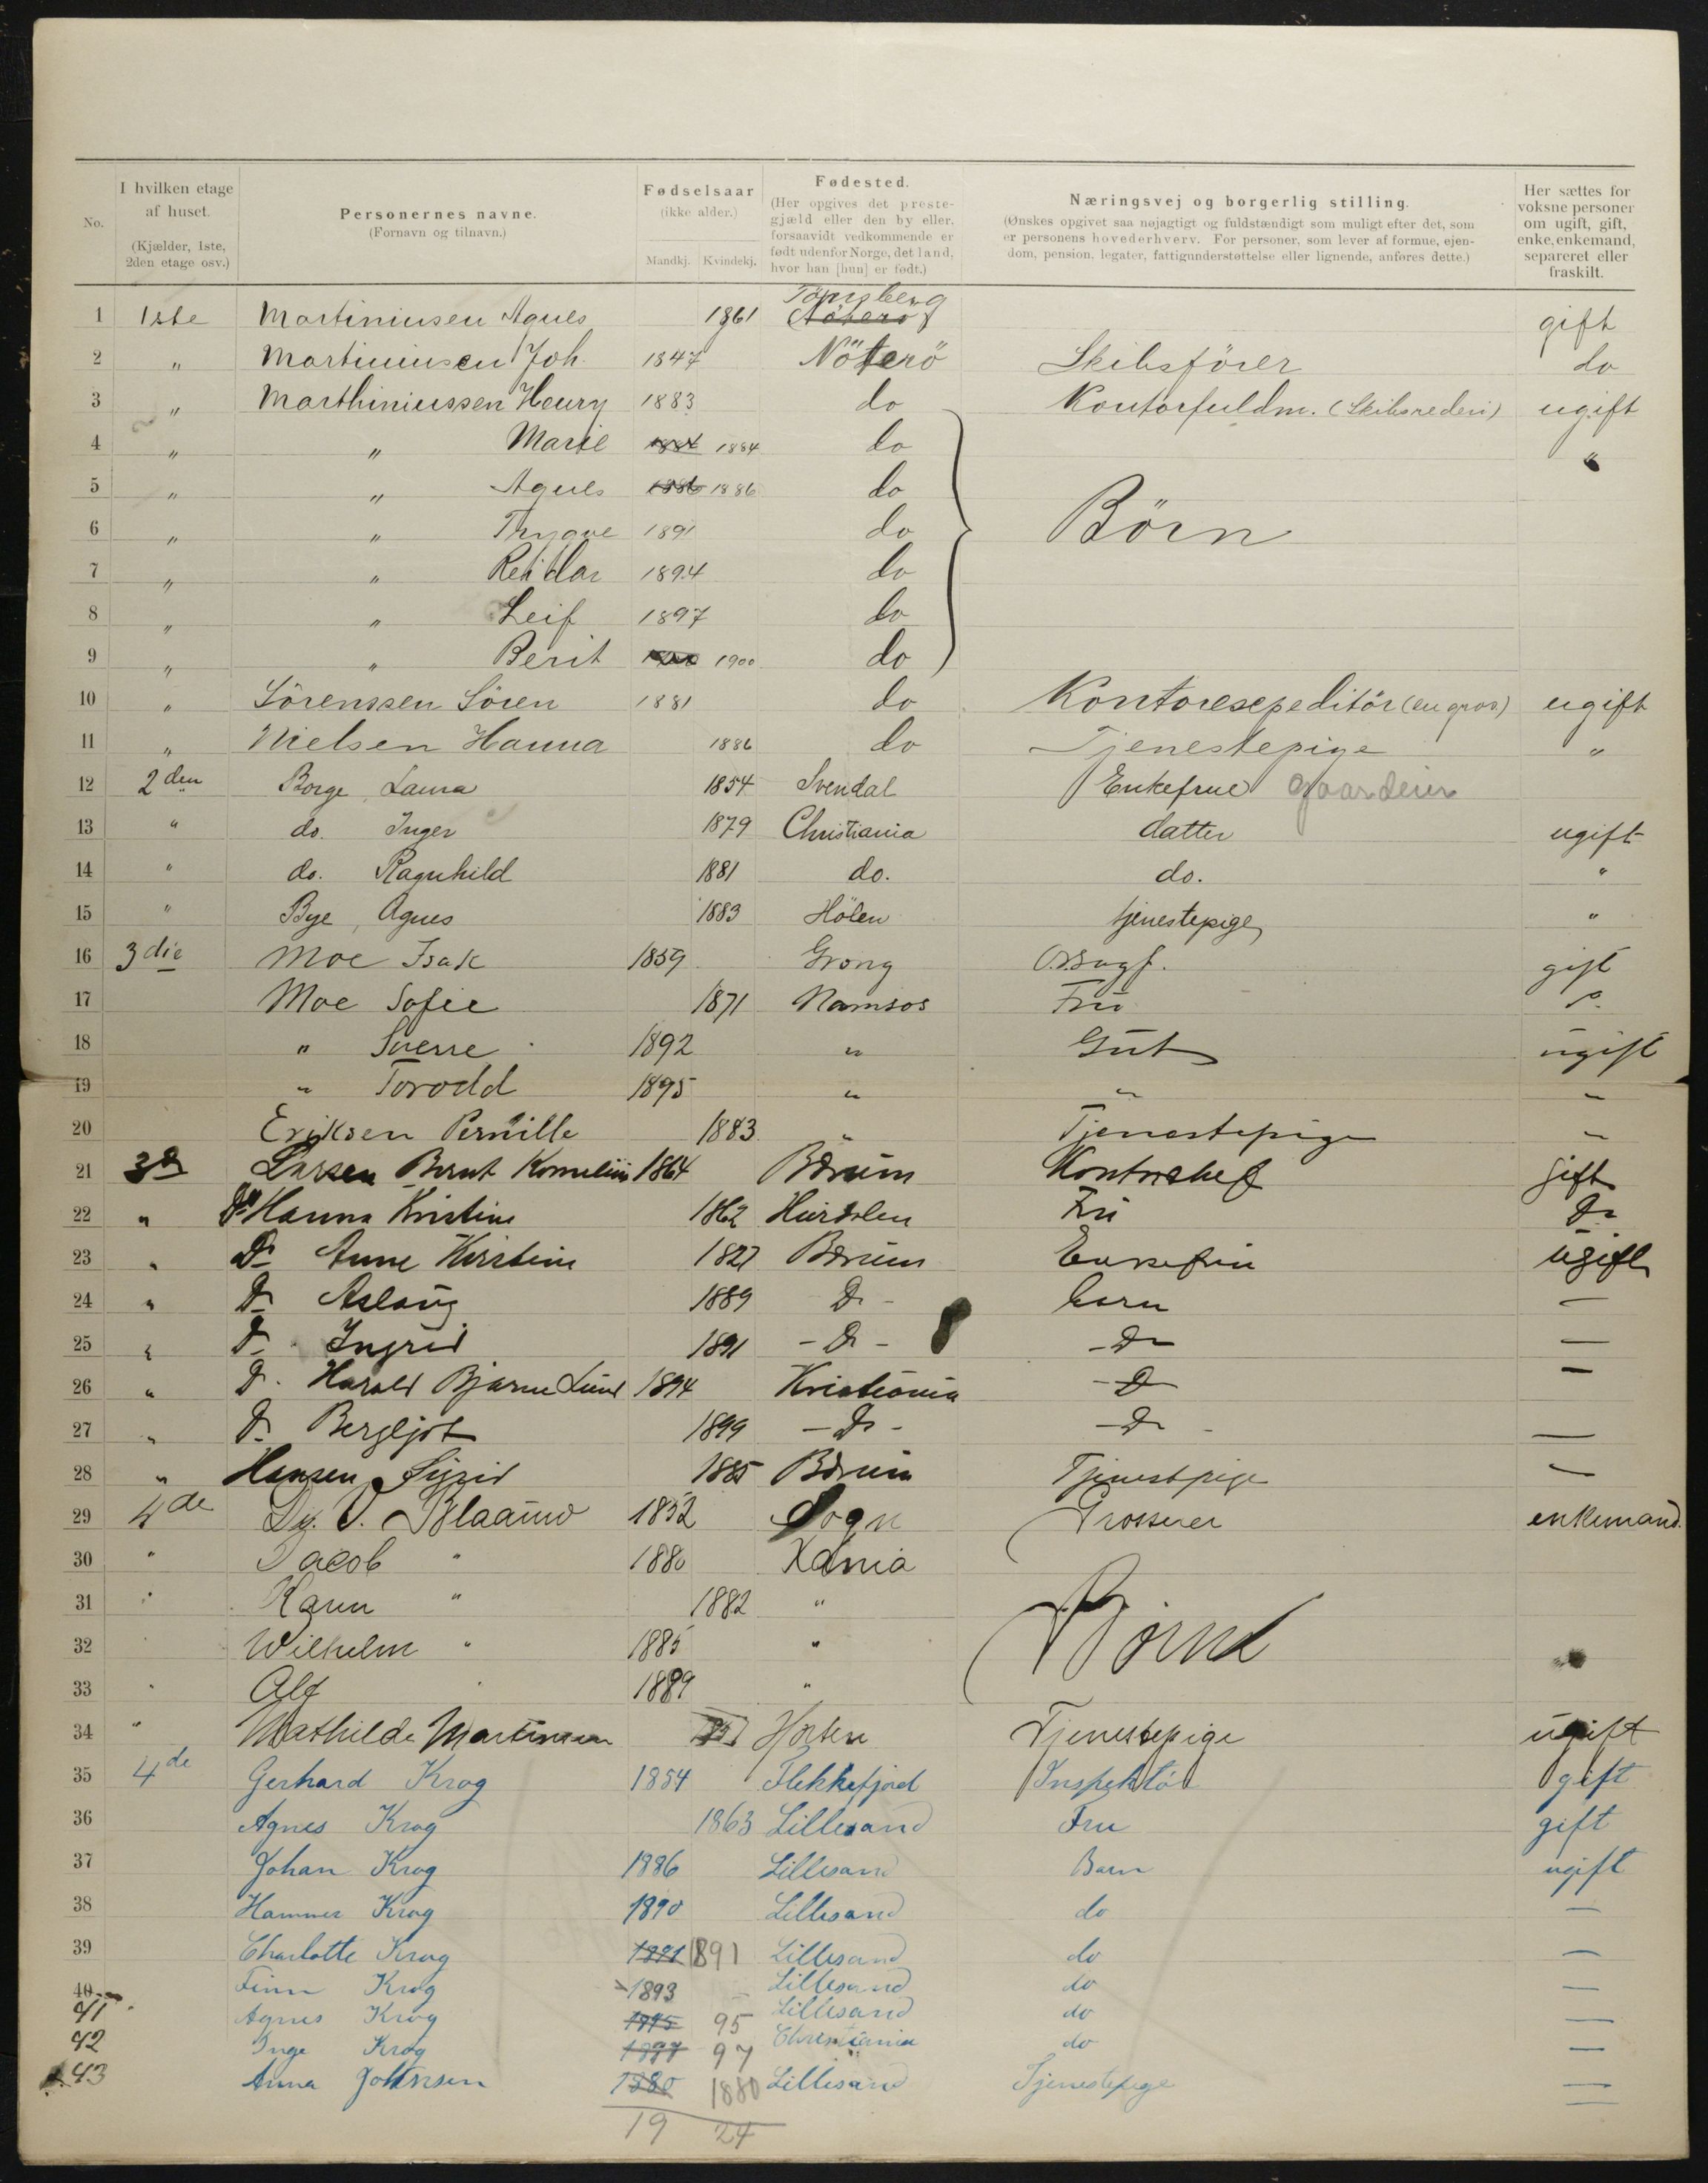 No.
I hvilken etage af huset. (Kjælder, 1ste, 2den etage osv.)
Personernes navne. (Fornavn og tilnavn.)
Fødselsaar (ikke alder.) Mandkj. Kvindekj.
Fødested. (Her opgives det prestegjæld eller den by eller, forsaavidt vedkommende er født udenfor Norge, det land, hvor han [hun] er født.)
Næringsvej og borgerlig stilling. (Ønskes opgivet saa nøjagtigt og fuldstændigt som muligt efter det, som er personens hovederhverv. For personer, som lever af formue, ejendom, pension, legater, fattigunderstøttelse eller lignende, anføres dette.)
Her sættes for voksne personer om ugift, gift, enke, enkemand, separeret eller fraskilt.
1 1ste Martiniusen Agnes 1861 Tönsberg Nöterö gift
2 " Martiniusen Joh. 1847 Nöterö Skibsförer do
3 " Marthiniussen Henry 1883 do Kontorfuldm. (Skibsrederi) ugift
4 " " Marie 1884 1884 do "
5 " " Agnes 1886 1886 do
6 " " Trygve 1891 do Börn
7 " " Reidar 1894 do
8 " " Leif 1897 do
9 " " Berit 1900 1900 do
10 " Sörenssen Sören 1881 do Kontorexpeditör (en gros) ugift
11 " Nielsen Hanna 1886 do Tjenestepige "
12 2den Borge, Laura 1854 Svendal Enkefrue gaardeier
13 " do. Inger 1879 Christiania datter ugift
14 " do. Ragnhild 1881 do. do. "
15 " Bye, Agnes 1883 Hölen tjenestepige "
16 3die Moe Isak 1859 Grong O.r.sagf. gift
17 Moe Sofie 1871 Namsos Fru
18 " Sverre 1892 " Gut ugift
19 " Torodd 1895 " " "
20 Eriksen Pernille 1883 " Tjenestepige "
21 3d Larsen Bernt Kornelius 1864 Bærum Kontorchef gift
22 " Do Hanna Kristine 1862 Hurdalen Fru Do
23 " Do Anne Kirstine 1827 Bærum Enkefru ugift
24 " Do Aslaug 1889 Do - barn —
25 " Do Ingrid 1891 - Do - - Do —
26 " Do Harald Bjarne Lund 1894 Kristiania - Do —
27 " Do Bergljot 1899 - Do - - Do - —
28 " Hansen Sigrid 1885 Bærum Tjenestpige —
29 4de Blaauw 1852 Sogn Grosserer enkemand.
30 " Jacob " 1880 Kania
31 " Karen " 1882 "
32 Wilhelm " 1885 " Börn
33 Alf 1889 "
34 " Mathilde Martinsen Horten Tjenestepige ugift
35 4de Gerhard Krog 1854 Flekkefjord Inspektör gift
36 Agnes Krog 1863 Lillesand Fru gift
37 Johan Krog 1886 Lillesand Barn ugift
38 Hammer Krog 1890 Lillesand do —
39 Charlotte Krog 1891 1891 Lillesand do —
40 Finn Krog 1893 Lillesand do —
41 Agnes Krog 1895 95 Lillesand do —
42 Inge Krog 1897 97 Christiania do —
43 Anna Johnsen 1880 1880 Lillesand Tjenestepige —
19 24